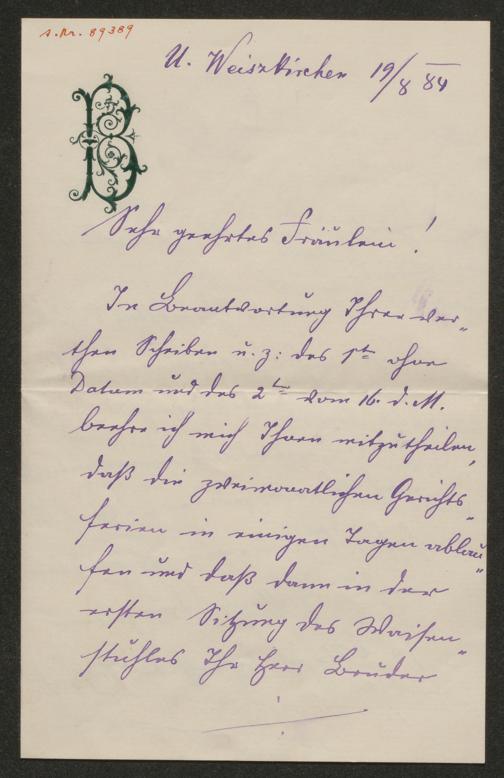 A.Nr. 89389
U. Weiszkirchen 19/8 84
B
Sehr geehrtes Fräulein!
In Beantwortung Ihrer wer„
then Schreiben u. z: des 1ten ohne
Datum und des 2ten vom 16. d. M.
beehre ich mich Ihnen mitzutheilen,
daß die zweimonatlichen Gerichts„
ferien in einigen Tagen ablau„
fen und daß dann in der
ersten Sitzung des Waisen„
stuhles Ihr Herr Bruder